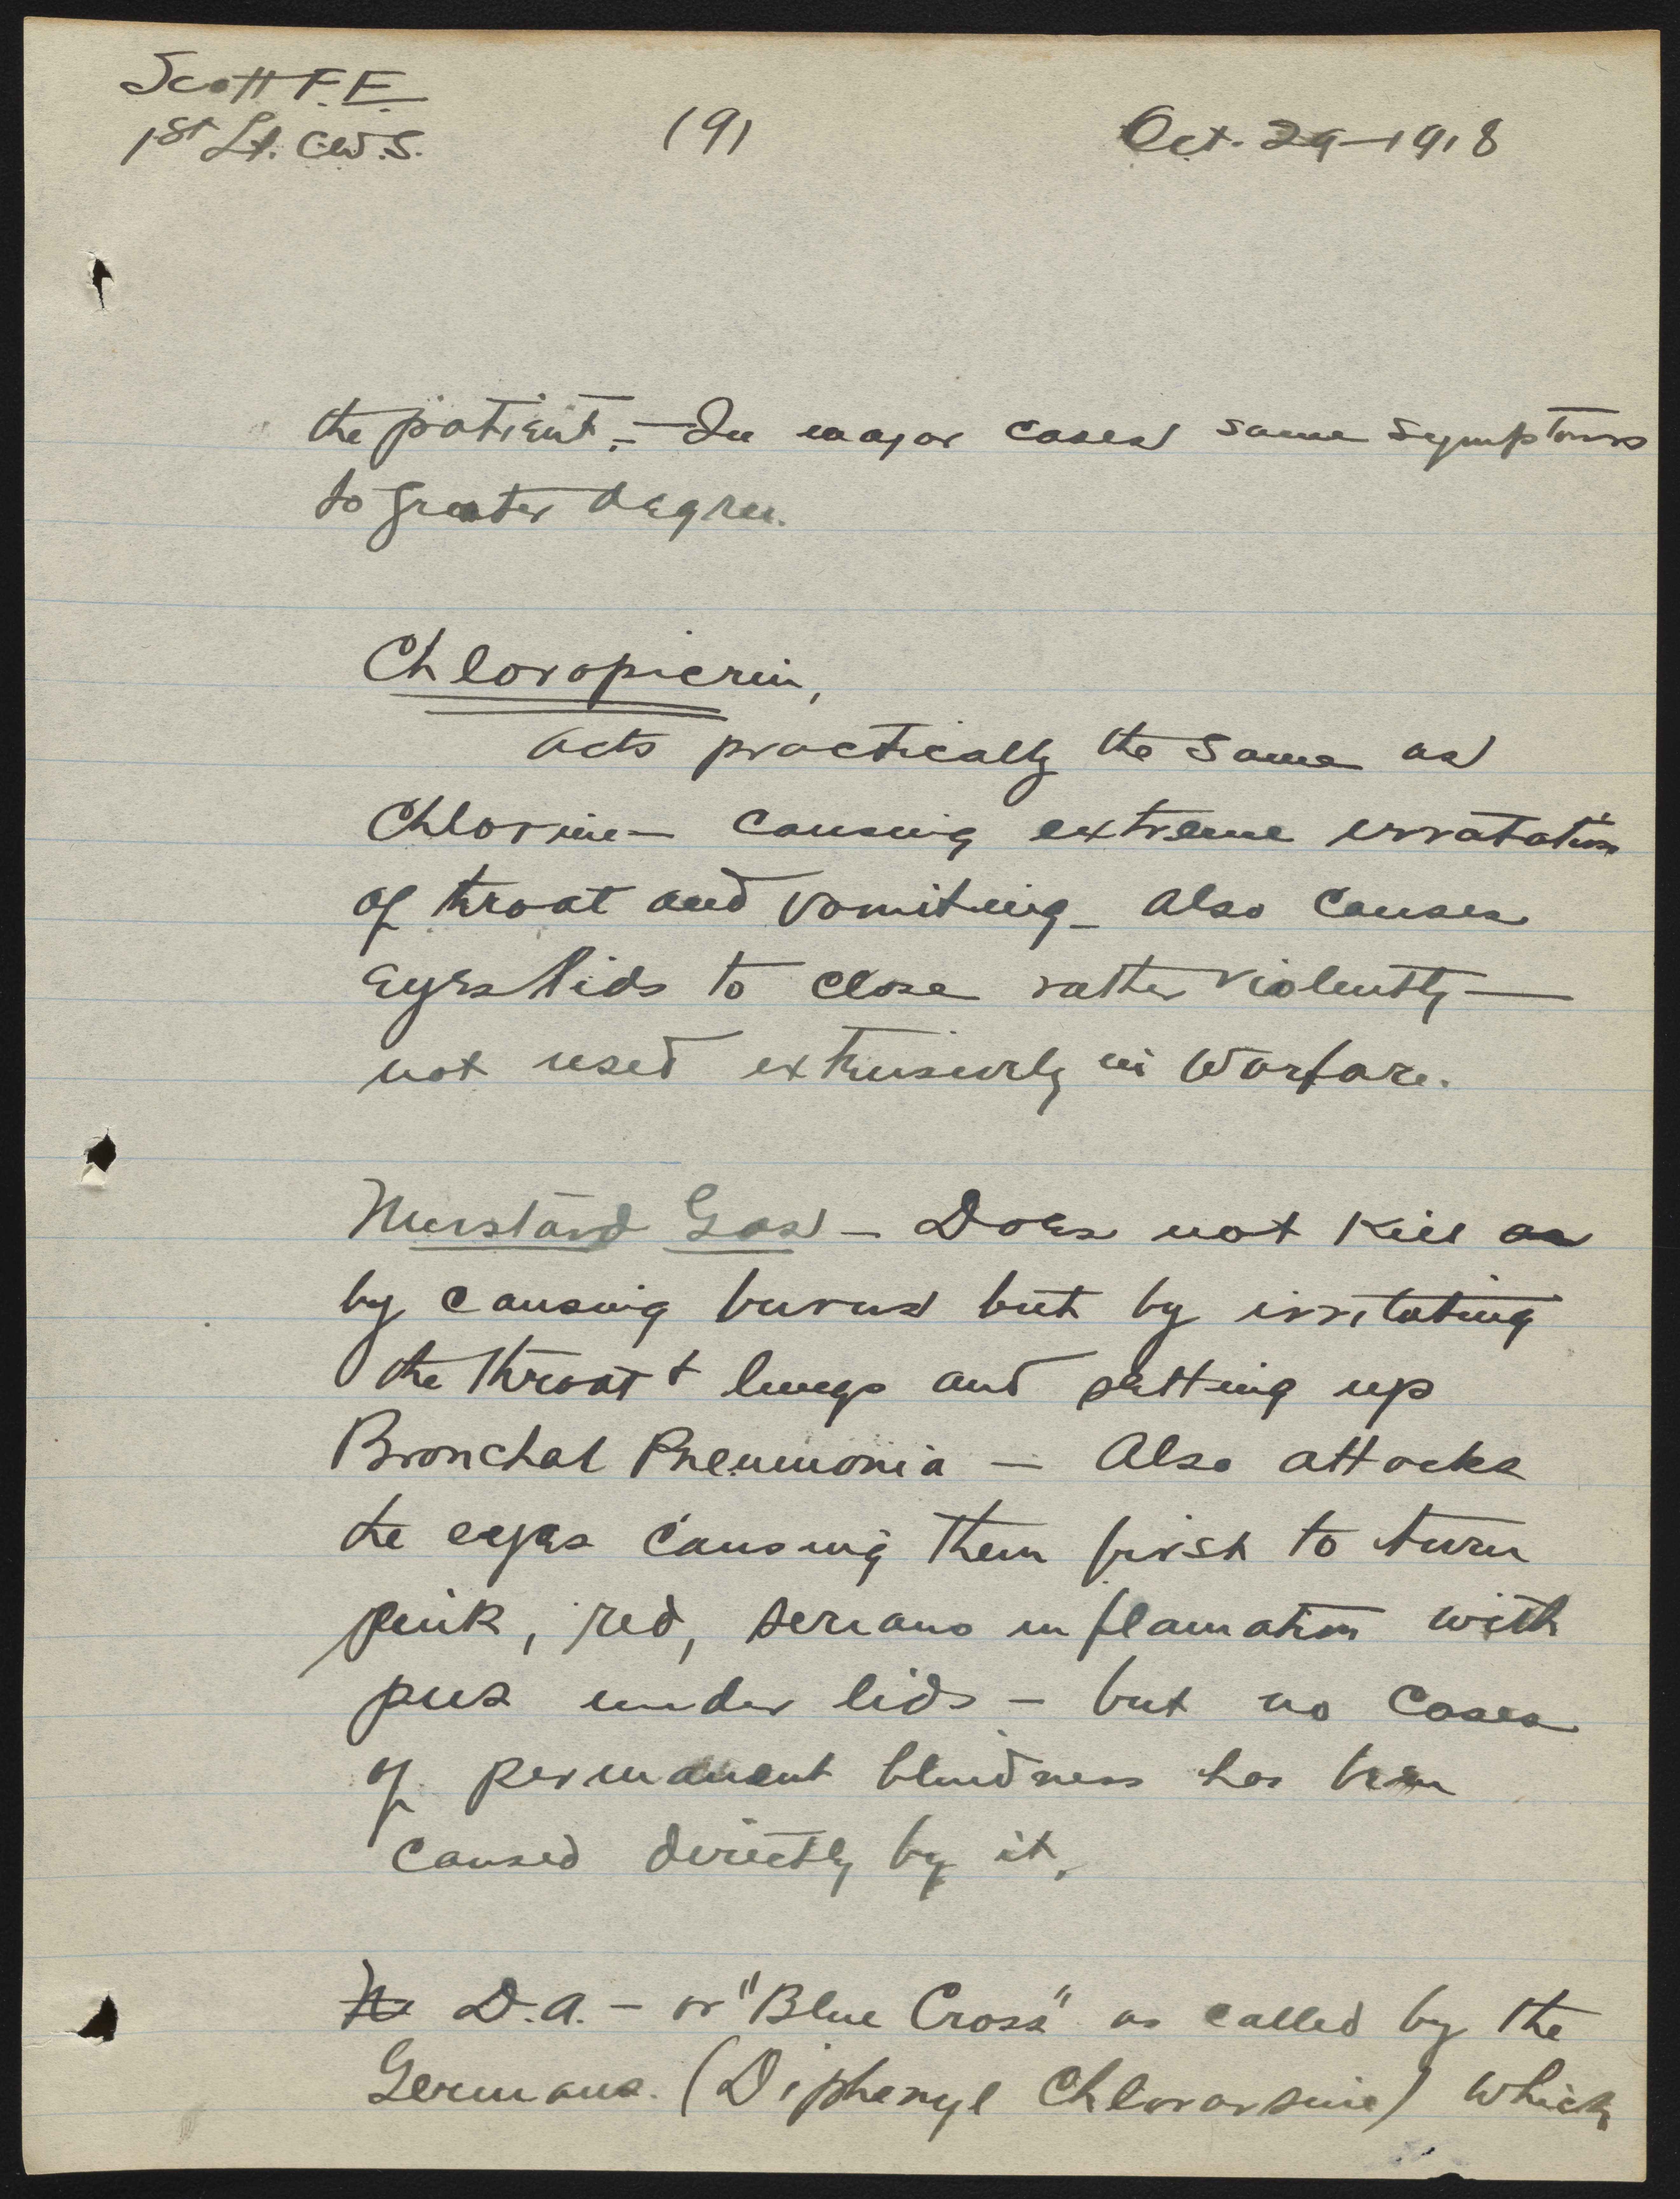 Scott F.E.
1st Lt. C.W.S.
(9)
Oct. 29-1918
the patient. - In major cases same symptoms
to greater degree.
Chloropicrin,
acts practically the same as
Chlorine - causing extreme irratation
of throat and vomiting - also causes
eyes lids to close rather violently -
not used extensively in warfare.
Mustard Gas - Does not kill as
by causing burns but by irritating
the throat + lungs and setting up
Bronchal Pneumonia - Also attacks
the eyes causing them first to turn
pink, red, serious inflamation with
pus under lids - but no cases
of permanent blindness has been
caused directly by it.
D.A. - or "Blue Cross" as called by the
Germans. (Diphenyl Chlorarsine) which